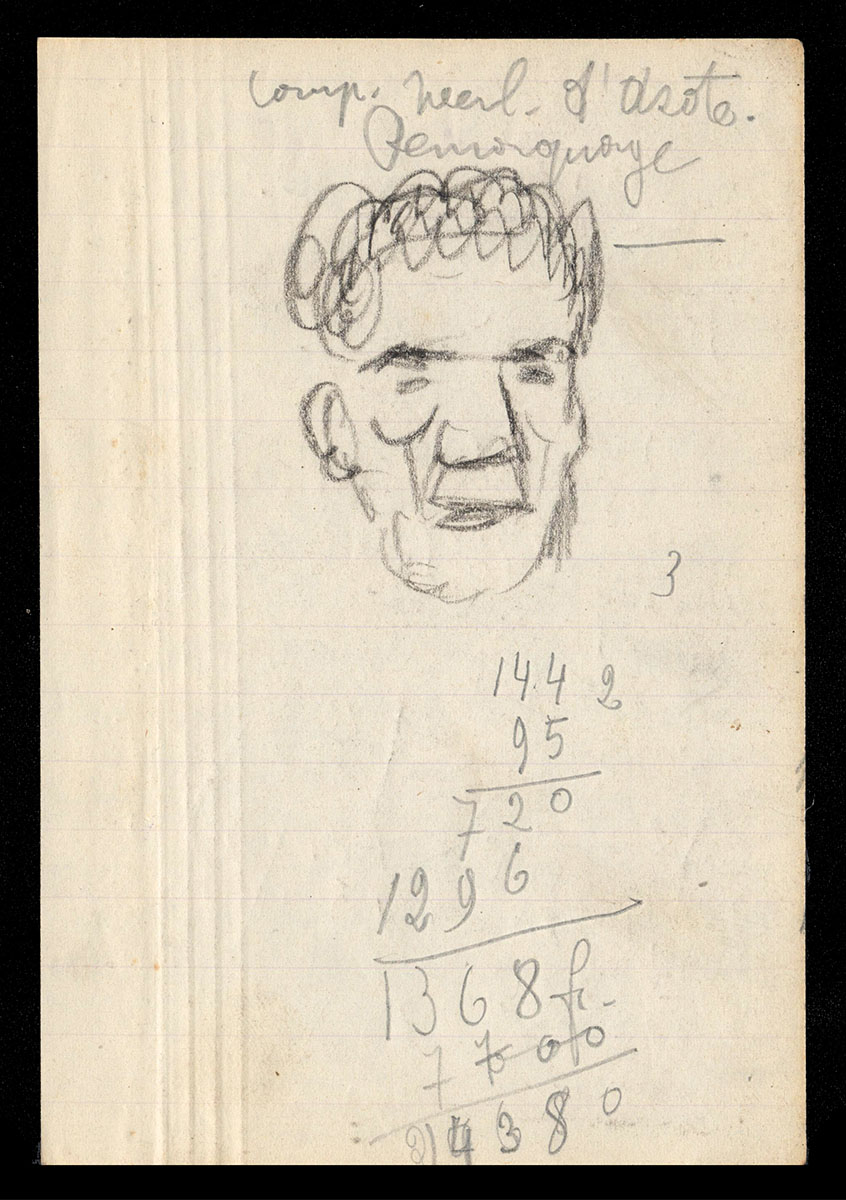 Comp. Neerl. d'Azote.
Remorquage
3
144 2
95
720
1296
1368 fr.
7700
21380